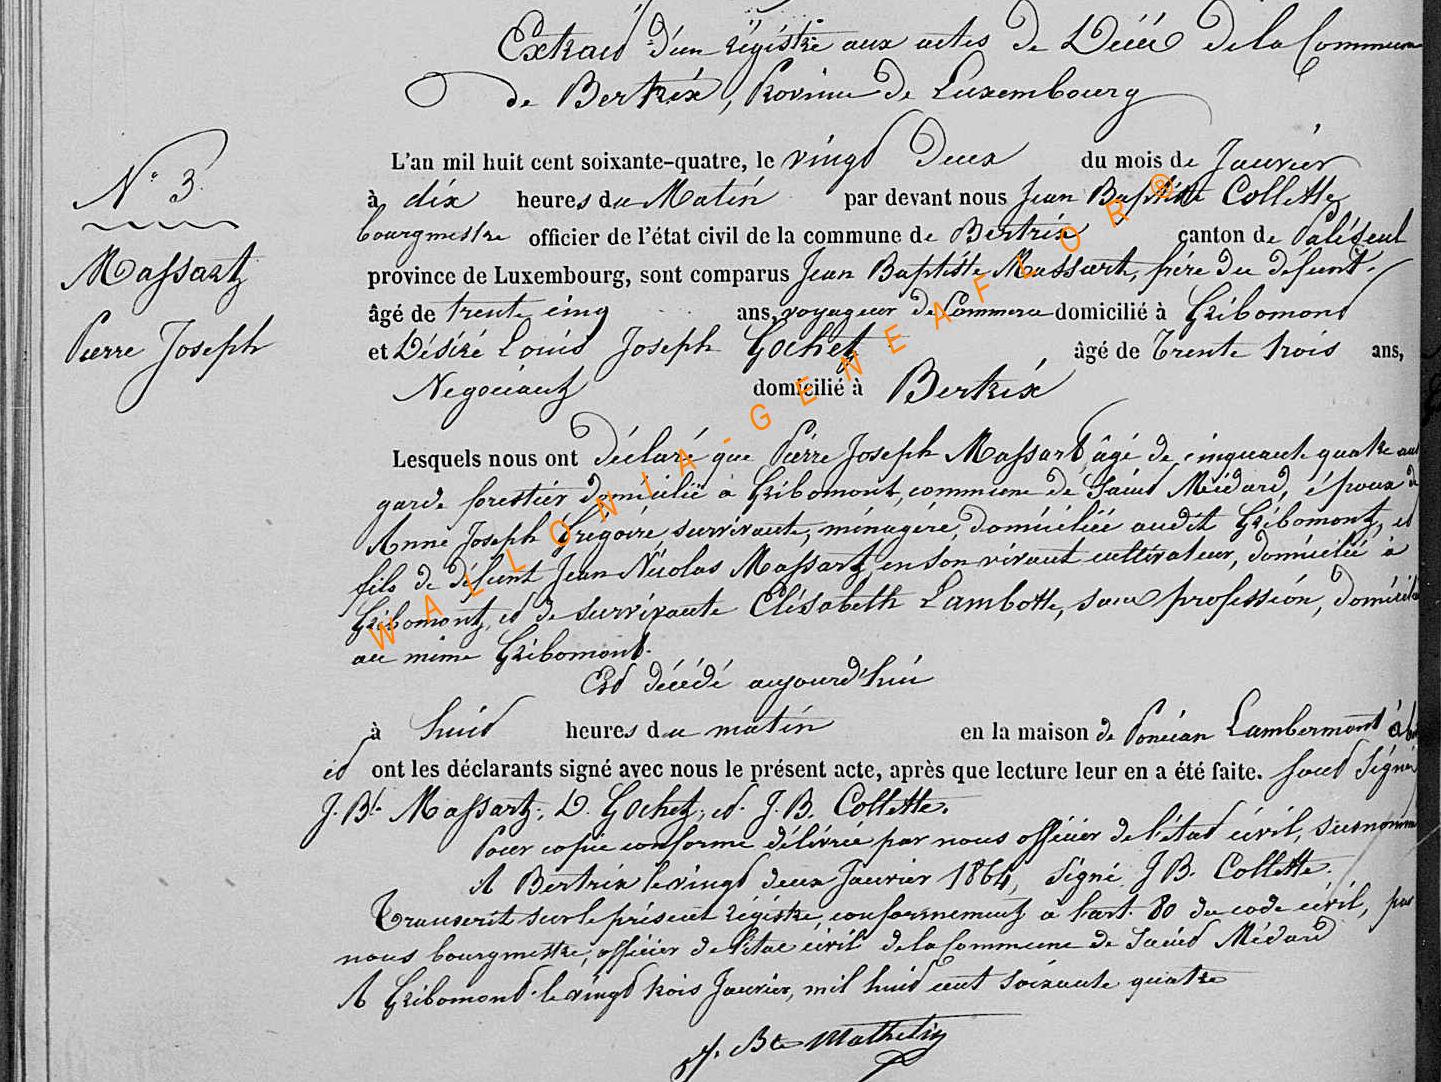 Extrait d'un régistre aux actes de Décés de la Commune
de Bertrix, Province de Luxembourg
N° 3.
Massart
Pierre Joseph
L'an mil huit cent soixante-quatre, le vingt deux du mois de Janvier
à dix heures du Matin par devant nous Jean Baptiste Collette
bourgmestre officier de l'état civil de la commune de Bertrix canton de Paliseul
province de Luxembourg, sont comparus Jean Baptiste Massart, frère du défunt.
âgé de trente cinq ans, voyageur de Commerce domicilié à Gribomont
et Désiré Louis Joseph Gochet âgé de Trente trois ans,
Negociant domicilié à Bertrix
Lesquels nous ont déclaré que Pierre Joseph Massart, âgé de cinquante quatre ans
garde forestier domicilié à Gribomont, commune de Saint Médard, époux de
Anne Joseph Grégoire survivante, ménagère, domiciliée audit Gribomont, et
fils de défunt Jean Nicolas Massart, en son vivant cultivateur, domicilié à
Gribomont, et de survivante Elisabeth Lambotte, sans profession, domicilié
au même Gribomont.
Est décédé aujourd'hui
à huit heures du matin en la maison de Poncian Lambermont à
et ont les déclarants signé avec nous le présent acte, après que lecture leur en a été faite. sont signé
J. Bte Massart, D. Gochet, et J. B. Collette.
Pour copie conforme délivrée par nous officier de l'état civil, susnommé
A Bertrix le vingt deux Janvier 1864, Signé J B. Collette.
Transcrit sur le présent régistre conformement à l'art. 80 du code civil, par
nous bourgmestre, officier de l'état civil de la Commune de Saint Médard
A Gribomont le vingt trois Janvier, mil huit cent soixante quatre
J. Bte Mathelin
WALLONIA-GENEAFLOR®